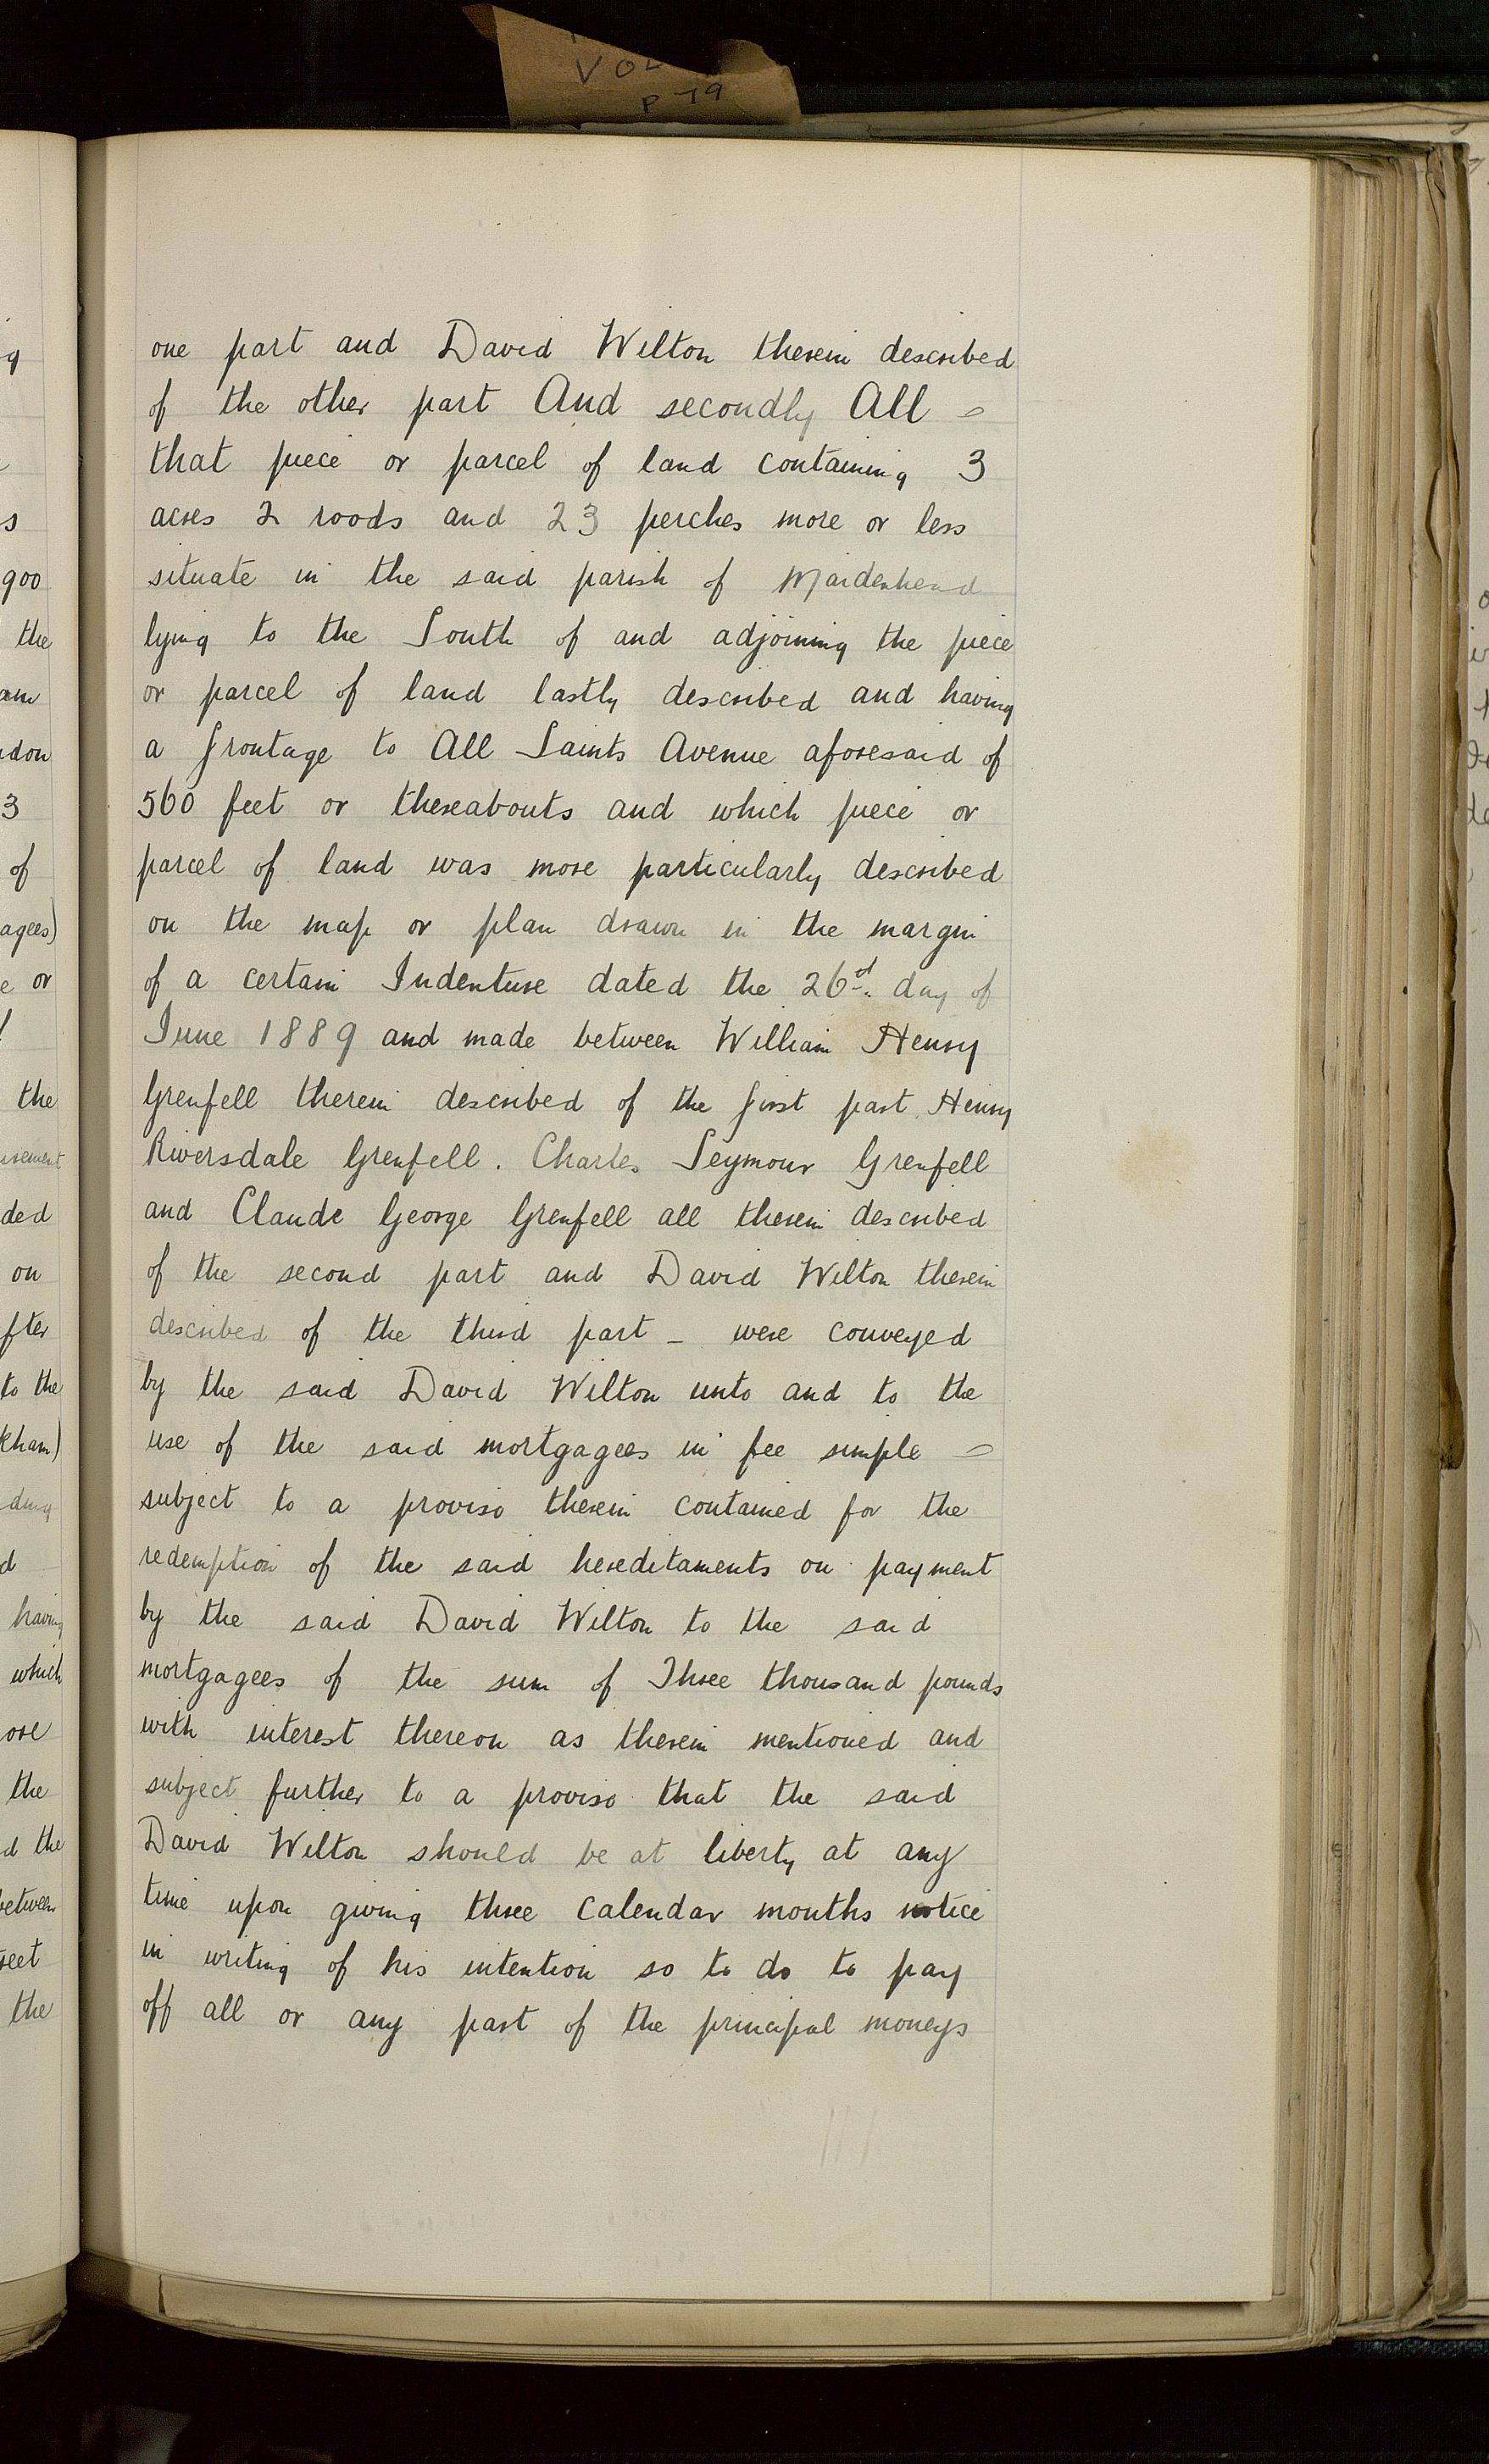 VOL
P 79
one part and David Wilton therein described
of the other part And secondly All
that piece or parcel of land containing 3
acres 2 roods and 23 perches more or less
situate in the said parish of Maidenhead
lying to the South of and adjoining the piece
or parcel of land lastly described and having
a frontage to All Saints Avenue aforesaid of
560 feet or thereabouts and which piece or
parcel of land was more particularly described
on the map or plan drawn in the margin
of a certain Indenture dated the 26th day of
June 1889 and made between William Henry
Grenfell therein described of the first part Henry
Riversdale Grenfell. Charles Seymour Grenfell
and Claude George Grenfell all therein described
of the second part and David Wilton therein
described of the third part – were conveyed
by the said David Wilton unto and to the
use of the said mortgagees in fee simple
subject to a proviso therein contained for the
redemption of the said hereditaments on payment
by the said David Wilton to the said
mortgagees of the sum of Three thousand pounds
with interest thereon as therein mentioned and
subject further to a proviso that the said
David Wilton should be at liberty at any
time upon giving three calendar months notice
in writing of his intention so to do to pay
off all or any part of the principal moneys